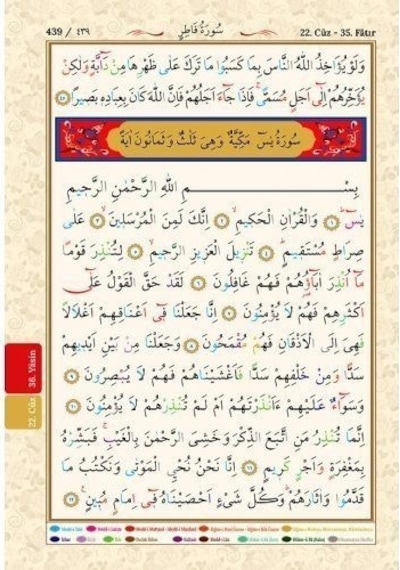 439 / ٤٣٩ سُورَةُ فَاطِرٍ 22. Cüz - 35. Fâtır
وَلَوْ يُؤَاخِذُ اللّٰهُ النَّاسَ بِمَا كَسَبُوا مَا تَرَكَ عَلٰى ظَهْرِهَا مِنْ دَٓابَّةٍ وَلٰكِنْ
يُؤَخِّرُهُمْ اِلٰٓى اَجَلٍ مُسَمًّىۚ فَاِذَا جَٓاءَ اَجَلُهُمْ فَاِنَّ اللّٰهَ كَانَ بِعِبَادِه۪ بَص۪يرًا ﴿٤٥﴾
سُورَةُ يٰسٓ مَكِّيَّةٌ وَهِىَ ثَلٰثٌ وَثَمَانُونَ اٰيَةً
بِسْمِ اللّٰهِ الرَّحْمٰنِ الرَّح۪يمِ
يٰسٓ ﴿١﴾ وَالْقُرْاٰنِ الْحَك۪يمِ ﴿٢﴾ اِنَّكَ لَمِنَ الْمُرْسَل۪ينَ ﴿٣﴾ عَلٰى
صِرَاطٍ مُسْتَق۪يمٍ ﴿٤﴾ تَنْز۪يلَ الْعَز۪يزِ الرَّح۪يمِ ﴿٥﴾ لِتُنْذِرَ قَوْمًا
مَٓا اُنْذِرَ اٰبَٓاؤُ۬هُمْ فَهُمْ غَافِلُونَ ﴿٦﴾ لَقَدْ حَقَّ الْقَوْلُ عَلٰٓى
اَكْثَرِهِمْ فَهُمْ لَا يُؤْمِنُونَ ﴿٧﴾ اِنَّا جَعَلْنَا ف۪ٓى اَعْنَاقِهِمْ اَغْلَالًا
فَهِىَ اِلَى الْاَذْقَانِ فَهُمْ مُقْمَحُونَ ﴿٨﴾ وَجَعَلْنَا مِنْ بَيْنِ اَيْد۪يهِمْ
سَدًّا وَمِنْ خَلْفِهِمْ سَدًّا فَاَغْشَيْنَاهُمْ فَهُمْ لَا يُبْصِرُونَ ﴿٩﴾
وَسَوَٓاءٌ عَلَيْهِمْ ءَاَنْذَرْتَهُمْ اَمْ لَمْ تُنْذِرْهُمْ لَا يُؤْمِنُونَ ﴿١٠﴾
اِنَّمَا تُنْذِرُ مَنِ اتَّبَعَ الذِّكْرَ وَخَشِىَ الرَّحْمٰنَ بِالْغَيْبِۚ فَبَشِّرْهُ
بِمَغْفِرَةٍ وَاَجْرٍ كَر۪يمٍ ﴿١١﴾ اِنَّا نَحْنُ نُحْيِ الْمَوْتٰى وَنَكْتُبُ مَا
قَدَّمُوا وَاٰثَارَهُمْؕ وَكُلَّ شَىْءٍ اَحْصَيْنَاهُ ف۪ٓى اِمَامٍ مُب۪ينٍ۟ ﴿١٢﴾
36. Yâsin
22. Cüz